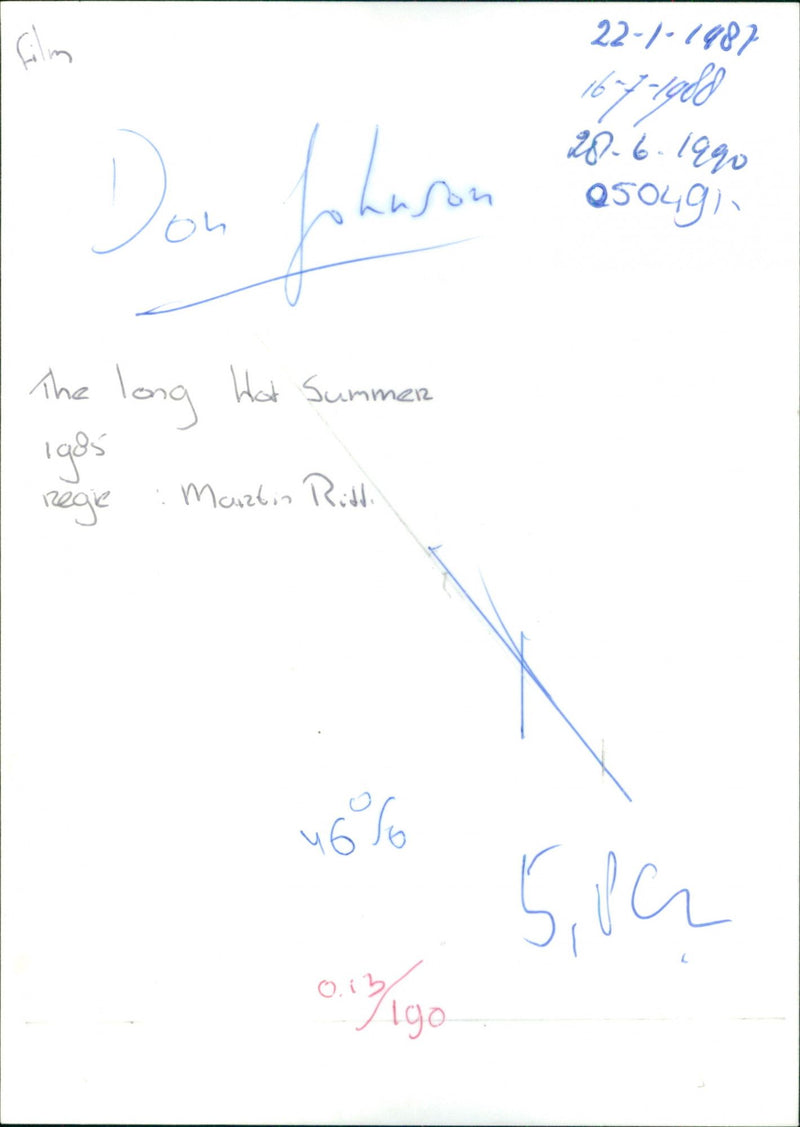 Film
22-1-1987
16-7-1988
28-6-1990
050491.
Don Johnson
The long Hot Summer
1985
regie : Martin Ritt.
46%
5,8c
0.13/190